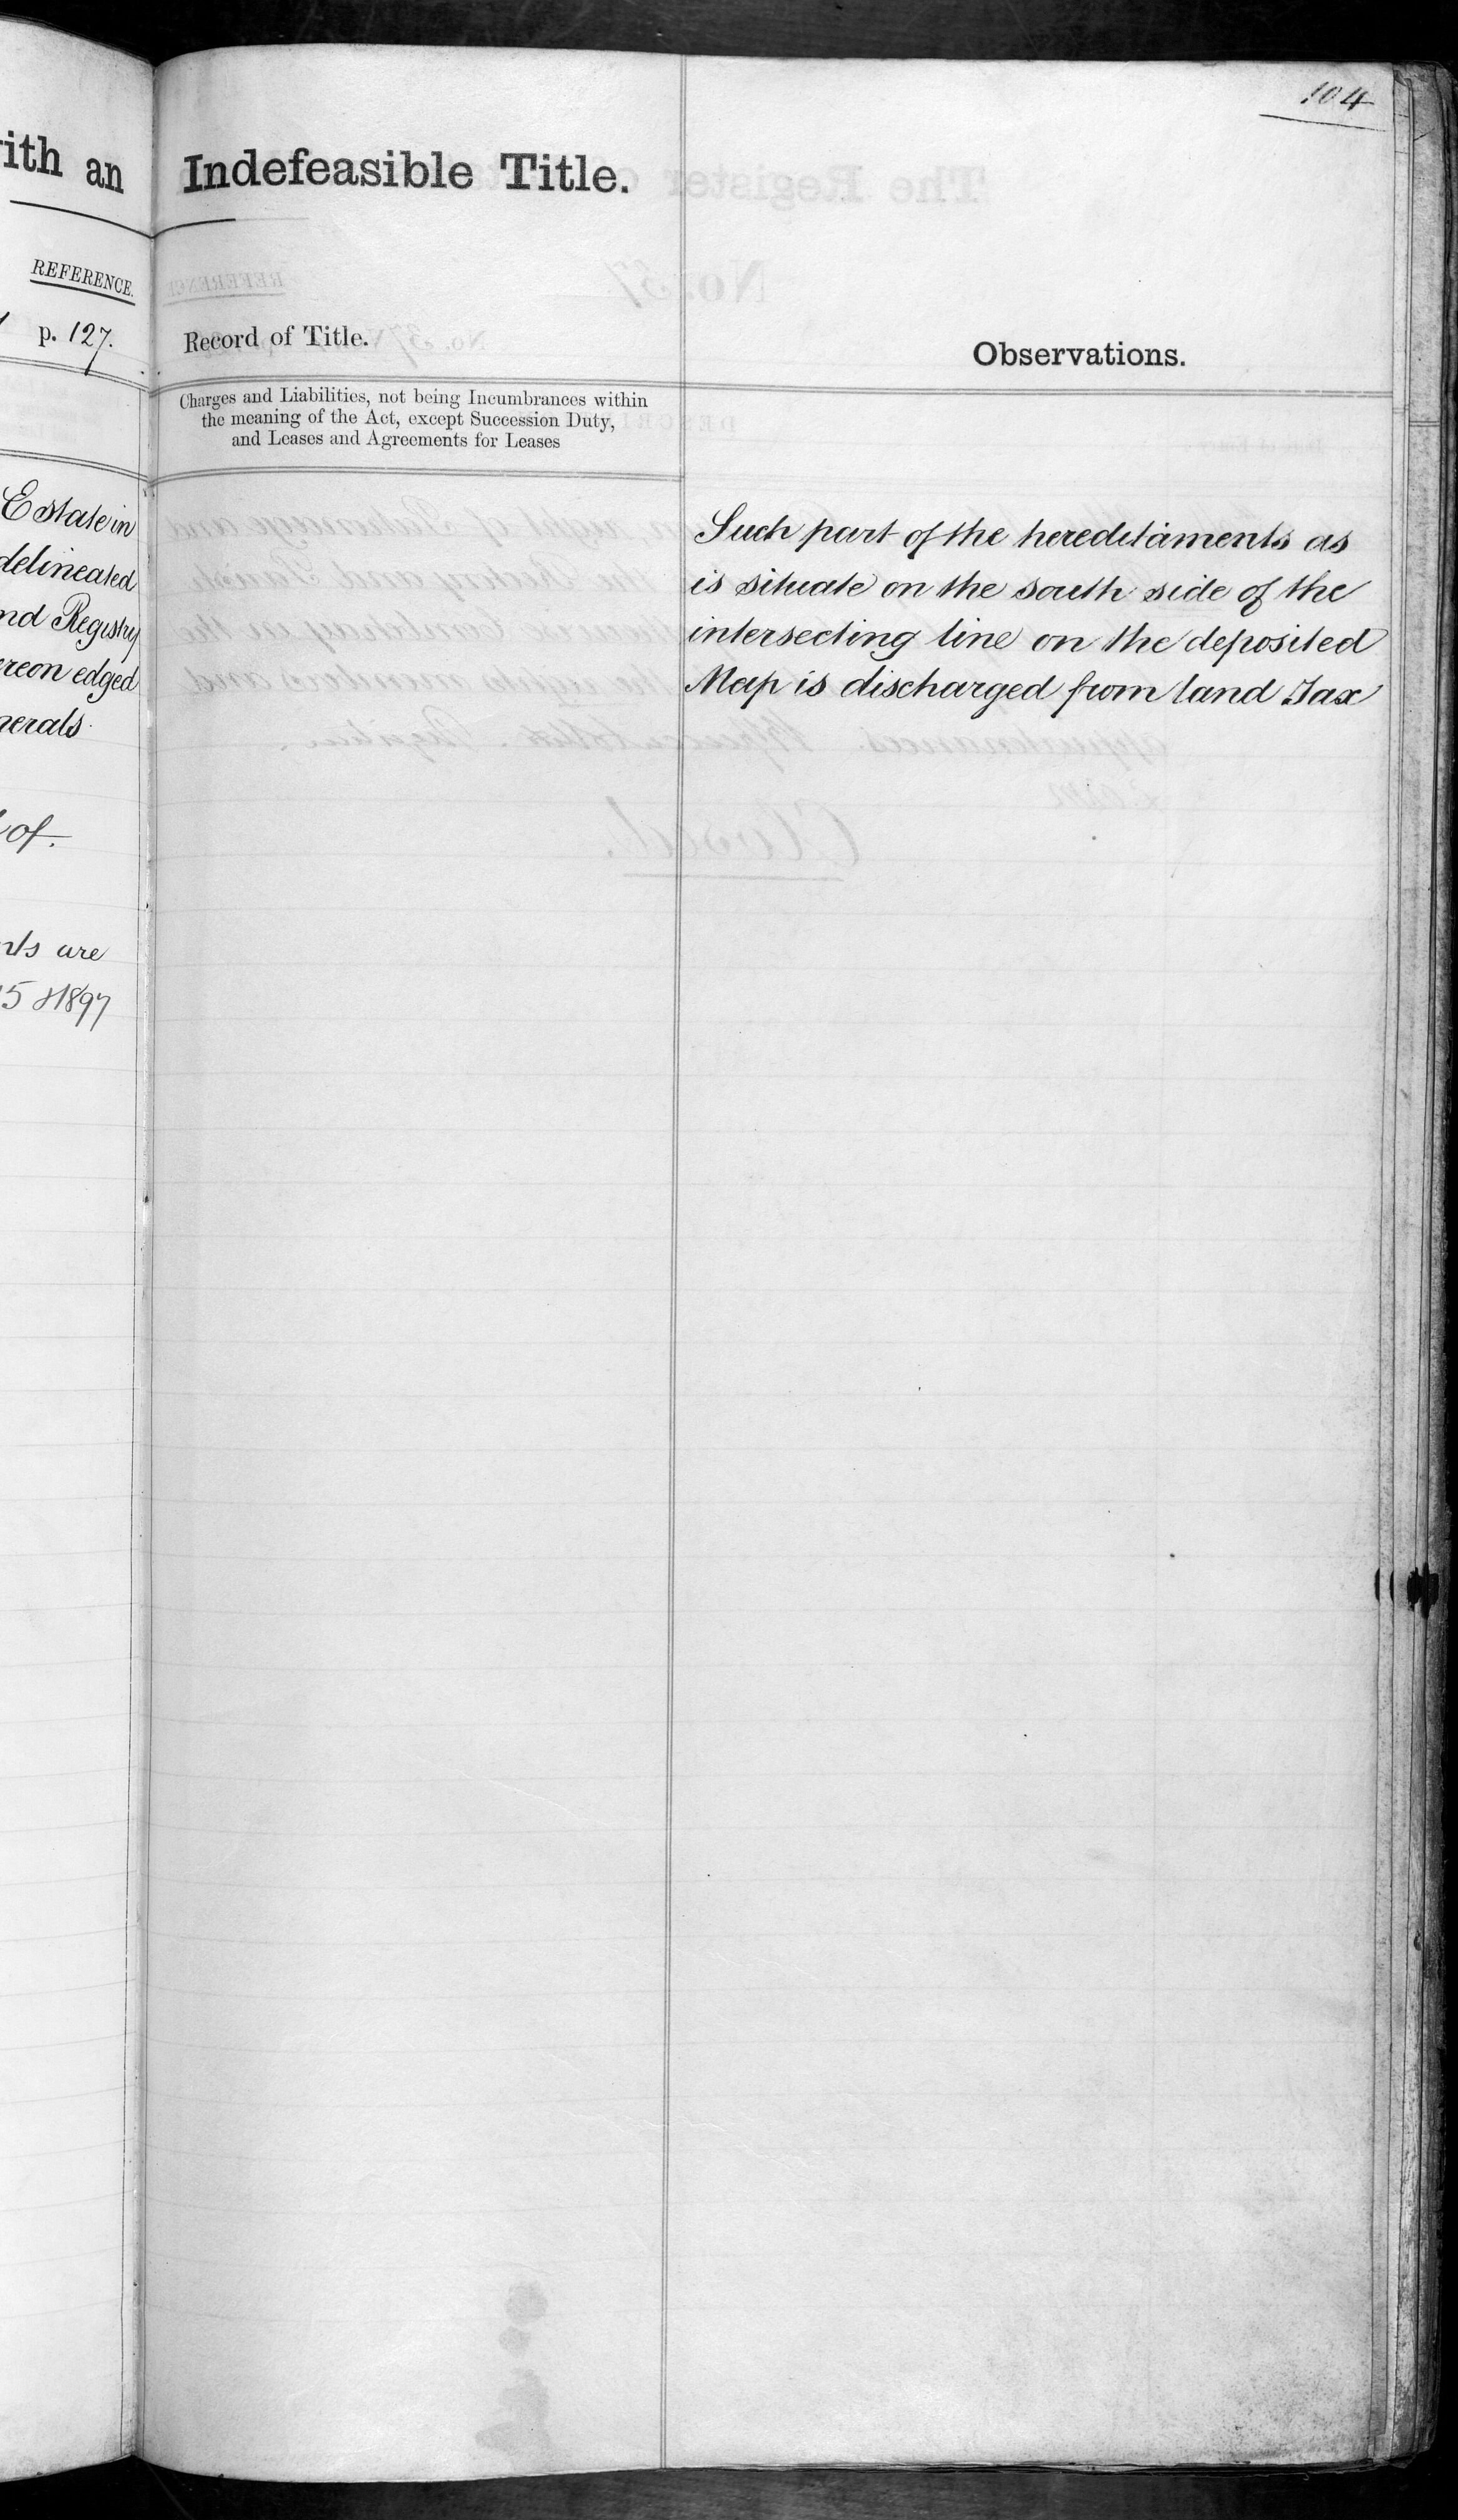 104
ith an
Indefeasible Title.
REFERENCE.
p. 127.
Record of Title.
Observations.
Charges and Liabilities, not being Incumbrances within
the meaning of the Act, except Succession Duty,
and Leases and Agreements for Leases
Estate in
delineated
nd Registry
ereon edged
nerals
of.
nts are
15 & 1897
Such part of the hereditaments as
is situate on the south side of the
intersecting line on the deposited
Map is discharged from land Tax